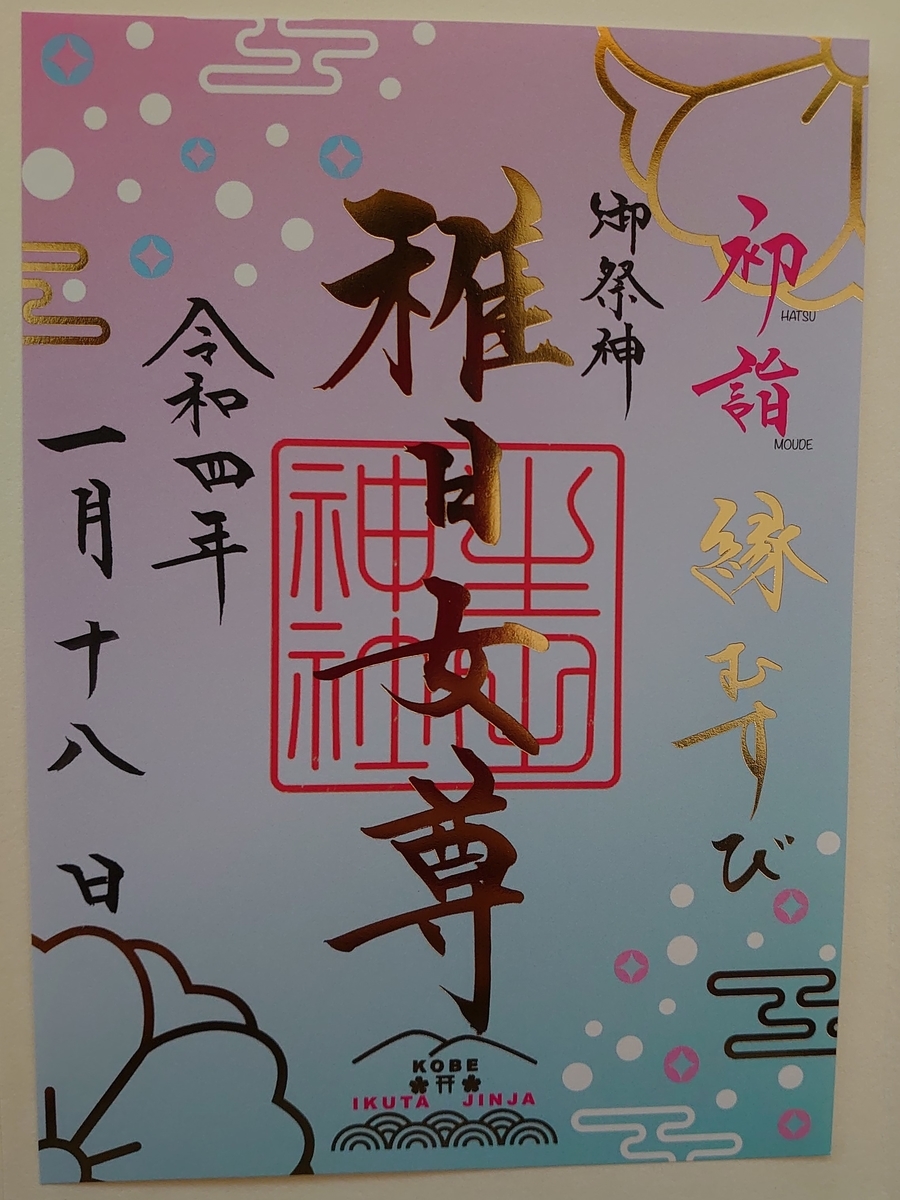 初詣
HATSU
MOUDE
縁むすび
御祭神
稚日女尊
生田
神社
令和四年
一月十八日
KOBE
IKUTA JINJA